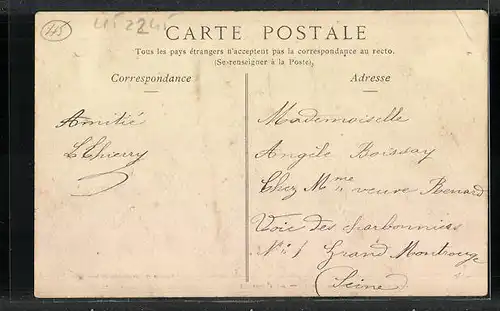 45
452245
CARTE POSTALE
Tous les pays étrangers n'acceptent pas la correspondance au recto.
(Se renseigner à la Poste).
Correspondance
Amitié
LThierry
Adresse
Mademoiselle
Angèle Boissay
Chez Mme veuve Renard
Voie des charbonniers
N° 1 Grand Montrouge
(Seine)